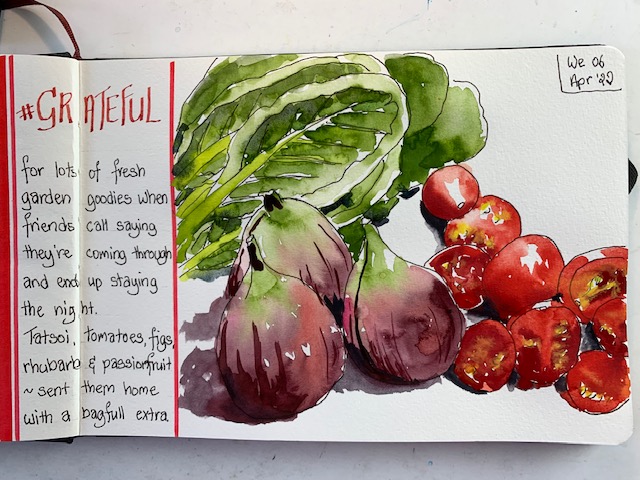 #GRATEFUL
for lots of fresh
garden goodies when
friends call saying
they're coming through
and end up staying
the night.
Tatsoi, tomatoes, figs,
rhubarb & passionfruit
~ sent them home
with a bagfull extra
We 06
Apr '22